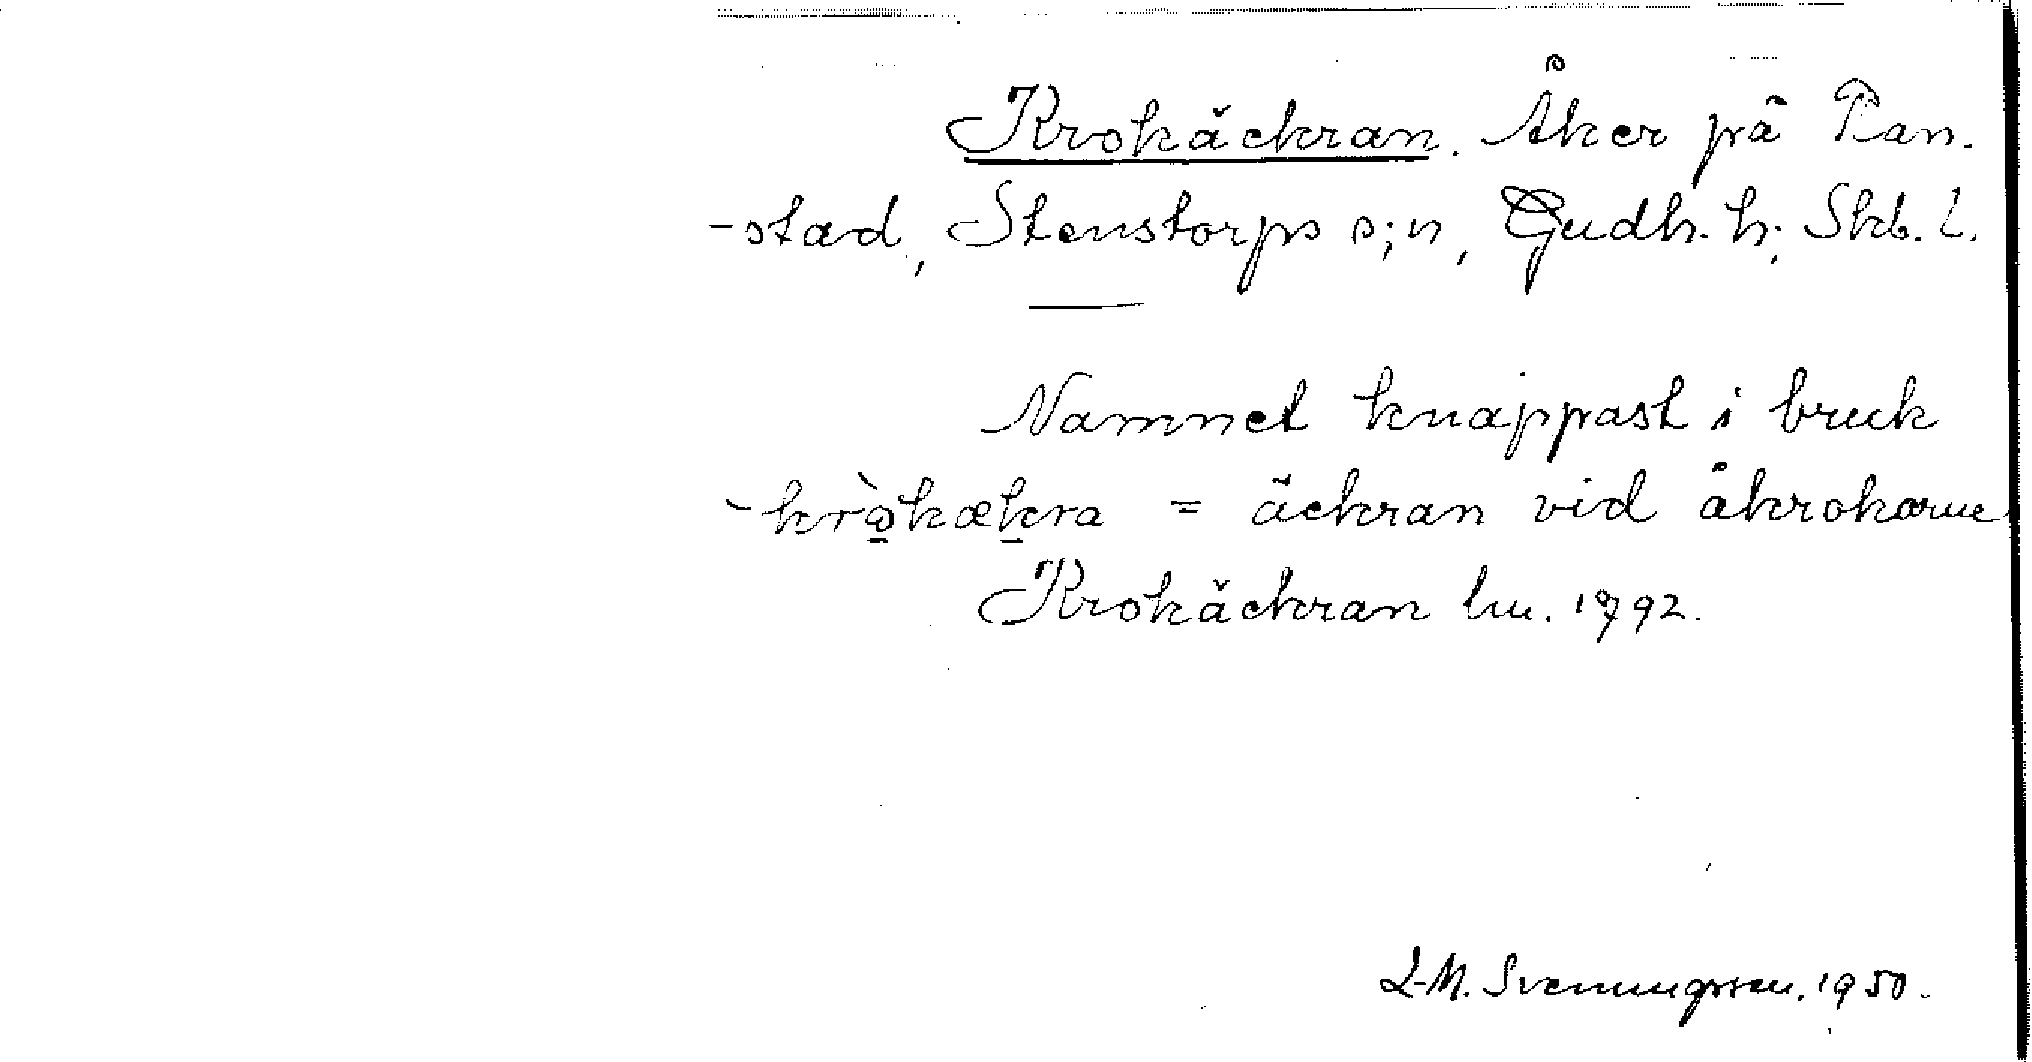 Krokäckran. Åker på Ran-
-stad, Stenstorps s;n, Gudh. h; Skb. l.
Namnet knappast i bruk
-kròkækra = äckran vid åkrokarne
Krokäckran lm. 1792.
L-M. Svenungsson. 1950.